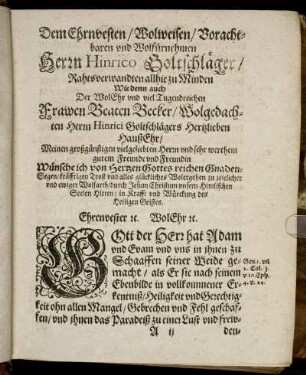 Dem Ehrnvesten/ Wolweisen/ Voracht-
baren vnd Wolfürnehmen
Herrn Hinrico Goltschläger/
Rahtsverwandten allhie zu Minden
Wie denn auch
Der WolEhr vnd viel Tugendreichen
Frawen Beaten Becker/ Wolgedach-
ten Herrn Hinrici Goltschlägers Hertzlieben
HaußEhr/
Meinen großgünstigen vielgeliebten Herrn vnd sehr werthem
gutem Freunde vnd Freundin
Wünsche ich von Hertzen Gottes reichen Gnaden-
Segen/ kräfftigen Trost vnd alles glückliches Wolergehen zu zeitlicher
vnd ewiger Wolfarth durch Jesum Christum vnsern Himlischen
Seelen Hirten/ in Krafft vnd Würckung des
Heiligen Geistes.
Ehrenvester ꝛc. WolEhr ꝛc.
GOtt der Herr hat Adam
vnd Evam vnd vns in ihnen zu
Schaaffen seiner Weide ge-
macht/ als Er sie nach seinem
Ebenbilde in vollkommener Er-
kentniß/ Heiligkeit vnd Gerechtig-
keit ohn allen Mangel/ Gebrechen vnd Fehl geschaf-
fen/ vnd ihnen das Paradeiß zu einer Lust vnd frew-
A ij
den-
Gen. 1. vn
2. Col. 3.
v. 10. Eph.
4. v. 24.